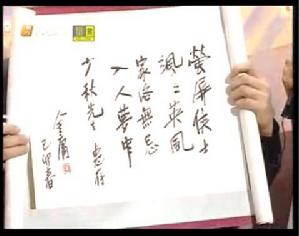 螢屏俠士
颯〻英風
家洛無忌
入人夢中
少秋先生 惠存
金庸
己卯春